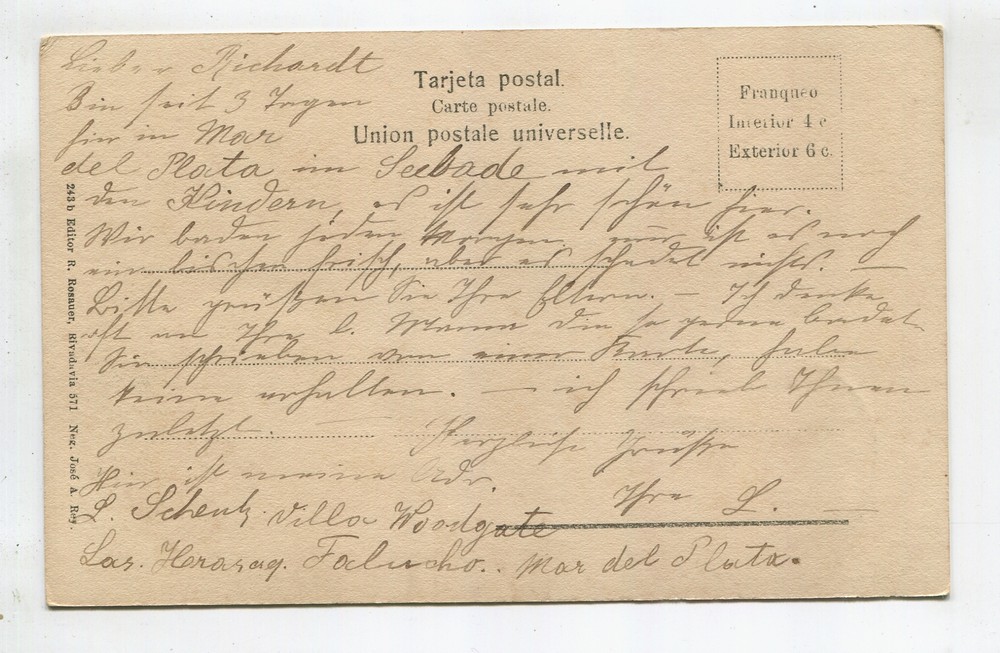 Tarjeta postal.
Carte postale.
Union postale universelle.
Franqueo
Interior 4 c
Exterior 6 c.
243 b Editor R. Rosauer, Rivadavia 571 Neg. José A. Rey.
Lieber Richardt
Bin seit 3 Tagen
hier in Mar
del Plata im Seebade mit
den Kindern, es ist sehr schön hier.
Wir baden jeden Morgen, nur ist es noch
ein bischen frisch, aber es schadet nichts. —
Bitte grüßen Sie Ihre Eltern. Ich denke
oft an Ihre l. Mama die so gerne badet.
Sie schrieben von einer Karte, habe
keine erhalten. — ich schrieb Ihnen
zuletzt. Herzliche Grüße
Hier ist meine Adr. Ihre L.
L. Schenk Villa Woodgate
Las Heras Falucho.. Mar del Plata.